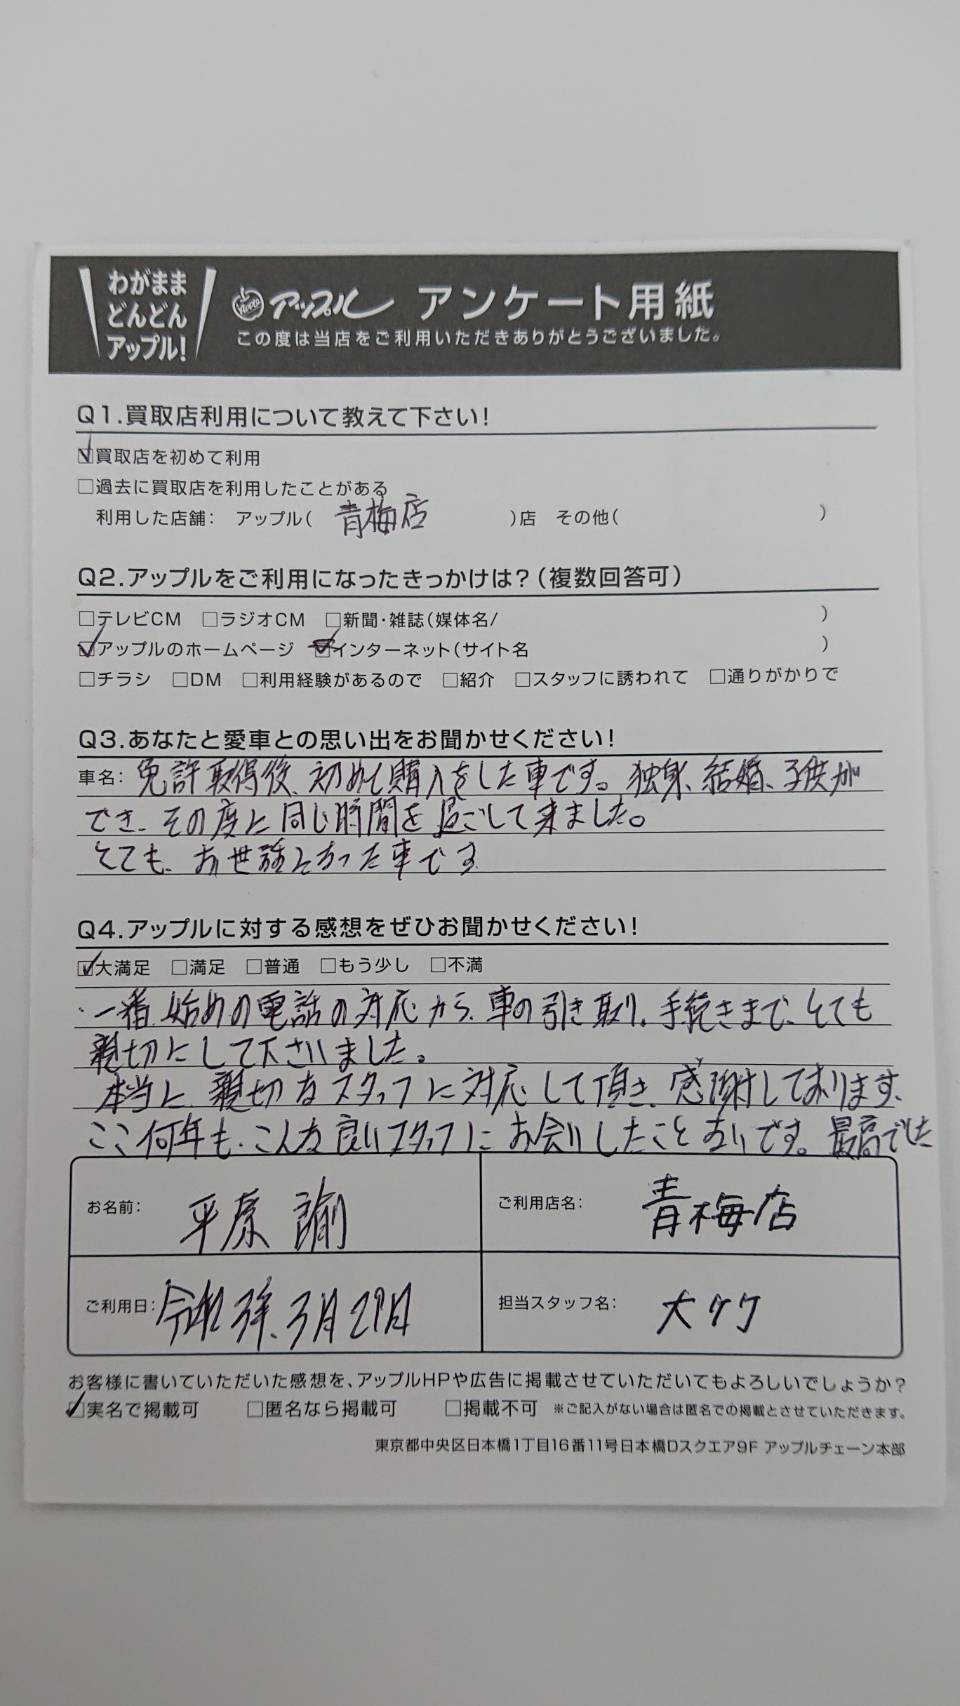 わがまま
どんどん
アップル!
アップル アンケート用紙
この度は当店をご利用いただきありがとうございました。
Q1.買取店利用について教えて下さい!
☑買取店を初めて利用
□過去に買取店を利用したことがある
利用した店舗: アップル( 青梅店 )店 その他( )
Q2.アップルをご利用になったきっかけは?(複数回答可)
□テレビCM □ラジオCM □新聞・雑誌(媒体名/ )
☑アップルのホームページ ☑インターネット(サイト名 )
□チラシ □DM □利用経験があるので □紹介 □スタッフに誘われて □通りがかりで
Q3.あなたと愛車との思い出をお聞かせください!
車名: 免許取得後、初めて購入をした車です。独身、結婚、子供が
でき、その度に同じ時間を過ごして来ました。
とても、お世話になった車です
Q4.アップルに対する感想をぜひお聞かせください!
☑大満足 □満足 □普通 □もう少し □不満
・一番始めの電話の対応から、車の引き取り、手続きまで、とても
親切にして下さいました。
本当に、親切なスタッフに対応して頂き、感謝しております。
ここ何年も、こんな良いスタッフにお会いしたことないです。最高でした
お名前: 平原 諭
ご利用店名: 青梅店
ご利用日: 令和3年、3月29日
担当スタッフ名: 大タケ
お客様に書いていただいた感想を、アップルHPや広告に掲載させていただいてもよろしいでしょうか?
☑実名で掲載可 □匿名なら掲載可 □掲載不可 ※ご記入がない場合は匿名での掲載とさせていただきます。
東京都中央区日本橋1丁目16番11号日本橋Dスクエア9F アップルチェーン本部